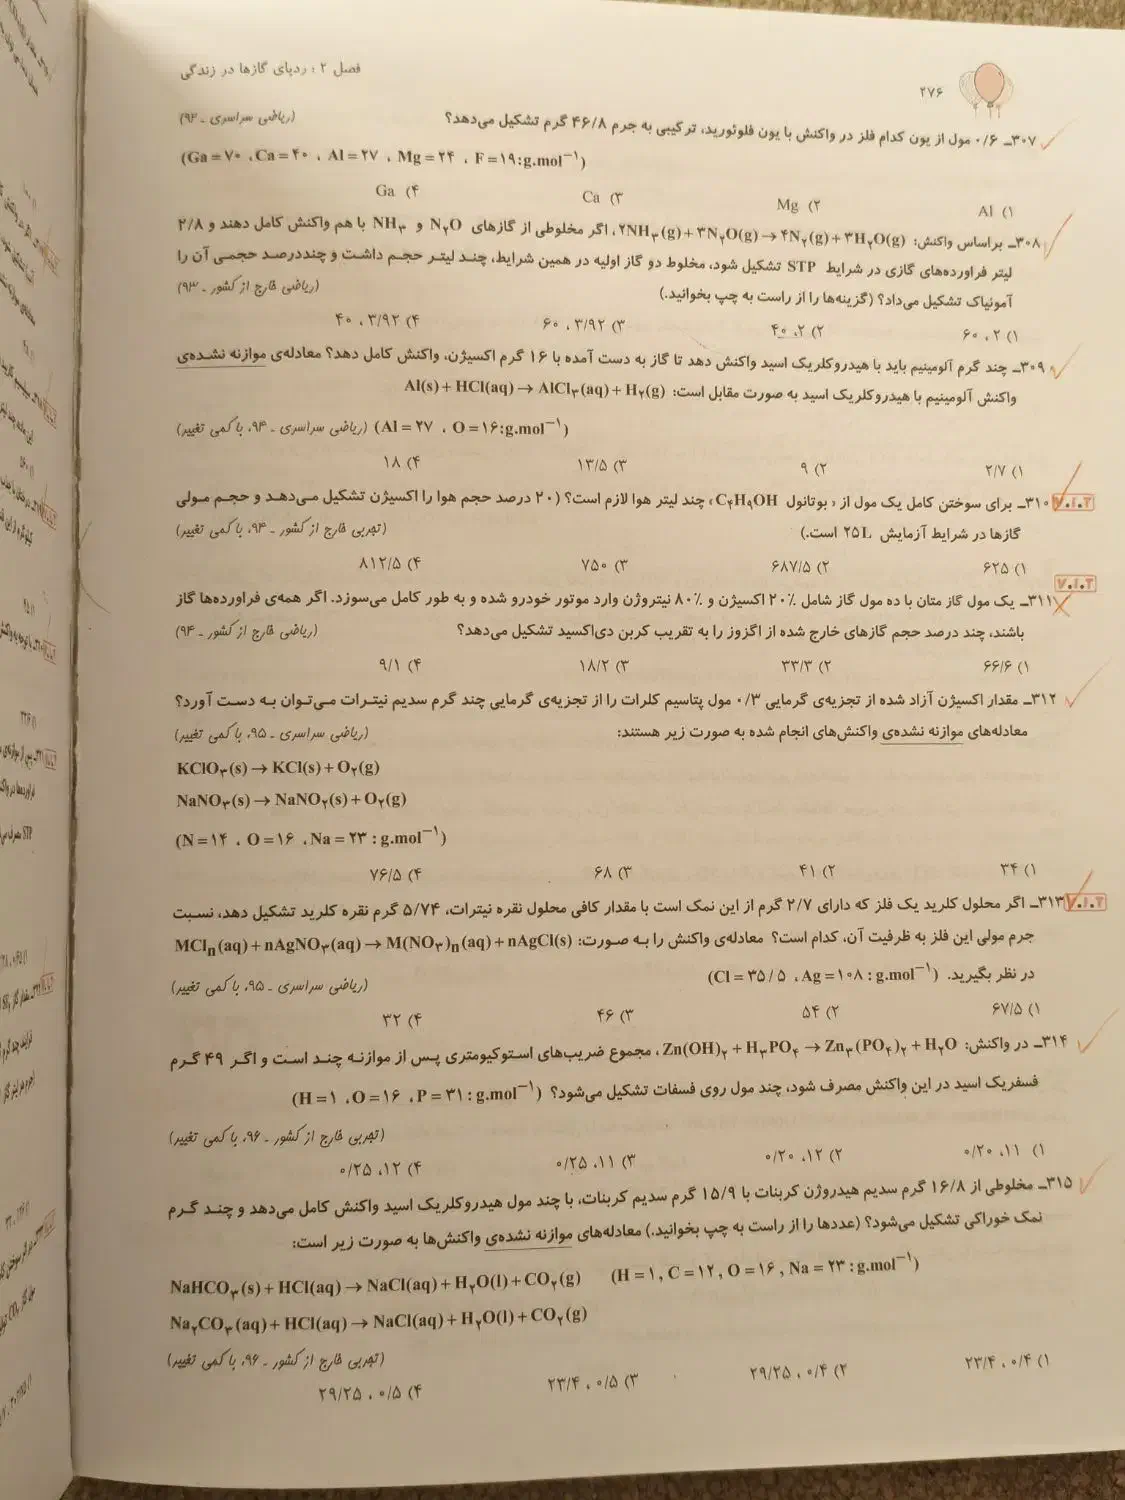 فصل ۲ : ردپای گازها در زندگی
۲۷۶
۳۰۷ـ ۰/۶ مول از یون کدام فلز در واکنش با یون فلوئورید، ترکیبی به جرم ۴۶/۸ گرم تشکیل می‌دهد؟ (ریاضی سراسری ـ ۹۲)
(Ga = ۷۰ ، Ca = ۴۰ ، Al = ۲۷ ، Mg = ۲۴ ، F = ۱۹ : g.mol⁻¹)
۱) Al ۲) Mg ۳) Ca ۴) Ga
۳۰۸ـ براساس واکنش: ۲NH₃(g) + ۳N₂O(g) → ۴N₂(g) + ۳H₂O(g)، اگر مخلوطی از گازهای N₂O و NH₃ با هم واکنش کامل دهند و ۲/۸
لیتر فراورده‌های گازی در شرایط STP تشکیل شود، مخلوط دو گاز اولیه در همین شرایط، چند لیتر حجم داشت و چنددرصد حجمی آن را
آمونیاک تشکیل می‌داد؟ (گزینه‌ها را از راست به چپ بخوانید.) (ریاضی خارج از کشور ـ ۹۳)
۱) ۲ ، ۶۰ ۲) ۲، ۴۰ ۳) ۳/۹۲ ، ۶۰ ۴) ۳/۹۲ ، ۴۰
۳۰۹ـ چند گرم آلومینیم باید با هیدروکلریک اسید واکنش دهد تا گاز به دست آمده با ۱۶ گرم اکسیژن، واکنش کامل دهد؟ معادله‌ی موازنه نشده‌ی
واکنش آلومینیم با هیدروکلریک اسید به صورت مقابل است: Al(s) + HCl(aq) → AlCl₃(aq) + H₂(g)
(Al = ۲۷ ، O = ۱۶ : g.mol⁻¹) (ریاضی سراسری ـ ۹۴، با کمی تغییر)
۱) ۲/۷ ۲) ۹ ۳) ۱۳/۵ ۴) ۱۸
V.I.T ۳۱۰ـ برای سوختن کامل یک مول از ، بوتانول C₄H₉OH، چند لیتر هوا لازم است؟ (۲۰ درصد حجم هوا را اکسیژن تشکیل می‌دهد و حجم مولی
گازها در شرایط آزمایش ۲۵L است.) (تجربی خارج از کشور ـ ۹۴، با کمی تغییر)
۱) ۶۲۵ ۲) ۶۸۷/۵ ۳) ۷۵۰ ۴) ۸۱۲/۵
V.I.T
۳۱۱ـ یک مول گاز متان با ده مول گاز شامل ۲۰٪ اکسیژن و ۸۰٪ نیتروژن وارد موتور خودرو شده و به طور کامل می‌سوزد. اگر همه‌ی فراورده‌ها گاز
باشند، چند درصد حجم گازهای خارج شده از اگزوز را به تقریب کربن دی‌اکسید تشکیل می‌دهد؟ (ریاضی خارج از کشور ـ ۹۴)
۱) ۶۶/۶ ۲) ۳۳/۳ ۳) ۱۸/۲ ۴) ۹/۱
۳۱۲ـ مقدار اکسیژن آزاد شده از تجزیه‌ی گرمایی ۰/۳ مول پتاسیم کلرات را از تجزیه‌ی گرمایی چند گرم سدیم نیترات می‌توان به دست آورد؟
معادله‌های موازنه نشده‌ی واکنش‌های انجام شده به صورت زیر هستند: (ریاضی سراسری ـ ۹۵، با کمی تغییر)
KClO₃(s) → KCl(s) + O₂(g)
NaNO₃(s) → NaNO₂(s) + O₂(g)
(N = ۱۴ ، O = ۱۶ ، Na = ۲۳ : g.mol⁻¹)
۱) ۳۴ ۲) ۴۱ ۳) ۶۸ ۴) ۷۶/۵
V.I.T ۳۱۳ـ اگر محلول کلرید یک فلز که دارای ۲/۷ گرم از این نمک است با مقدار کافی محلول نقره نیترات، ۵/۷۴ گرم نقره کلرید تشکیل دهد، نسبت
جرم مولی این فلز به ظرفیت آن، کدام است؟ معادله‌ی واکنش را به صورت: MClₙ(aq) + nAgNO₃(aq) → M(NO₃)ₙ(aq) + nAgCl(s)
در نظر بگیرید. (Cl = ۳۵/۵ ، Ag = ۱۰۸ : g.mol⁻¹) (ریاضی سراسری ـ ۹۵، با کمی تغییر)
۱) ۶۷/۵ ۲) ۵۴ ۳) ۴۶ ۴) ۳۲
۳۱۴ـ در واکنش: Zn(OH)₂ + H₃PO₄ → Zn₃(PO₄)₂ + H₂O، مجموع ضریب‌های استوکیومتری پس از موازنه چند است و اگر ۴۹ گرم
فسفریک اسید در این واکنش مصرف شود، چند مول روی فسفات تشکیل می‌شود؟ (H = ۱ ، O = ۱۶ ، P = ۳۱ : g.mol⁻¹)
(تجربی خارج از کشور ـ ۹۶، با کمی تغییر)
۱) ۱۱، ۰/۲۰ ۲) ۱۲، ۰/۲۰ ۳) ۱۱، ۰/۲۵ ۴) ۱۲، ۰/۲۵
۳۱۵ـ مخلوطی از ۱۶/۸ گرم سدیم هیدروژن کربنات با ۱۵/۹ گرم سدیم کربنات، با چند مول هیدروکلریک اسید واکنش کامل می‌دهد و چند گرم
نمک خوراکی تشکیل می‌شود؟ (عددها را از راست به چپ بخوانید.) معادله‌های موازنه نشده‌ی واکنش‌ها به صورت زیر است:
NaHCO₃(s) + HCl(aq) → NaCl(aq) + H₂O(l) + CO₂(g) (H = ۱ , C = ۱۲ , O = ۱۶ , Na = ۲۳ : g.mol⁻¹)
Na₂CO₃(aq) + HCl(aq) → NaCl(aq) + H₂O(l) + CO₂(g)
(تجربی خارج از کشور ـ ۹۶، با کمی تغییر)
۱) ۰/۴ ، ۲۳/۴ ۲) ۰/۴ ، ۲۹/۲۵ ۳) ۰/۵ ، ۲۳/۴ ۴) ۰/۵ ، ۲۹/۲۵